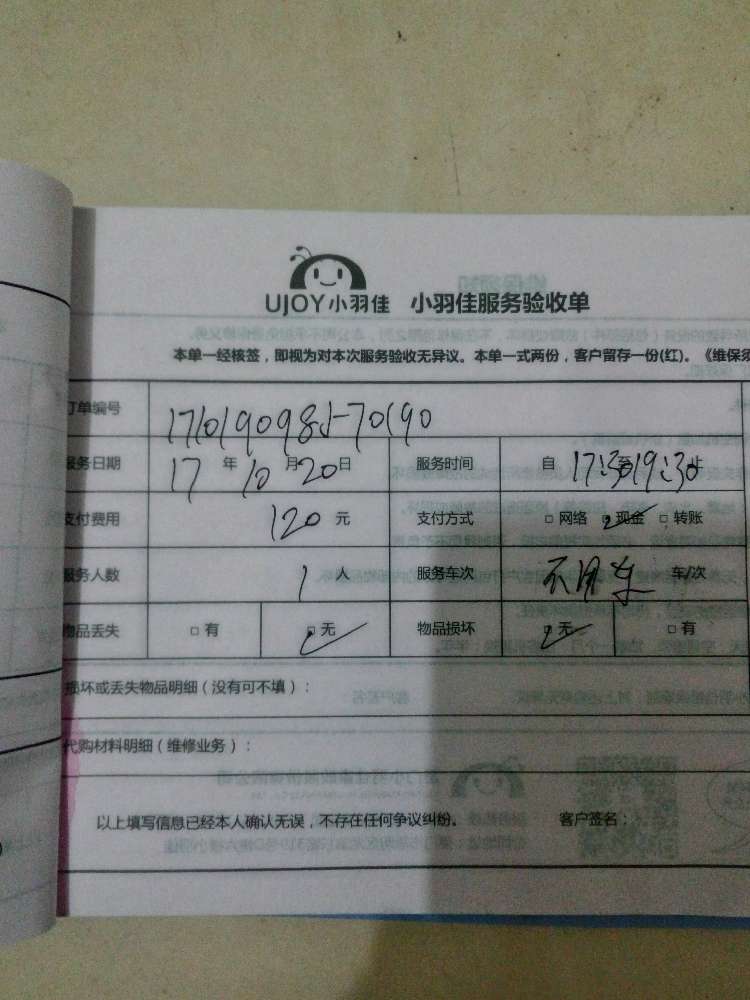 UJOY小羽佳 小羽佳服务验收单
本单一经核签，即视为对本次服务验收无异议。本单一式两份，客户留存一份(红)。《维保须
订单编号
服务日期 17 年 10 月 20 日 服务时间 自 17:30 至 19:30 止
支付费用 120 元 支付方式 □ 网络 □ 现金 □ 转账
服务人数 1 人 服务车次 不用车 车/次
物品丢失 □ 有 □ 无 物品损坏 □ 无 □ 有
损坏或丢失物品明细（没有可不填）：
代购材料明细（维修业务）：
以上填写信息已经本人确认无误，不存在任何争议纠纷。 客户签名：